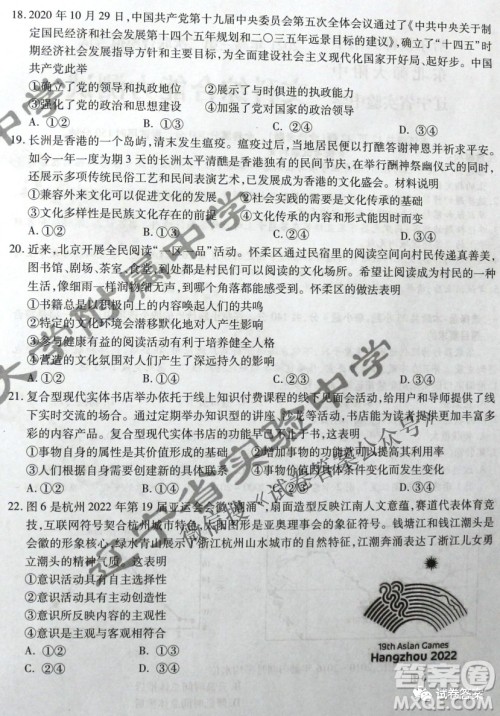 18. 2020 年 10 月 29 日,中国共产党第十九届中央委员会第五次全体会议通过了《中共中央关于制
定国民经济和社会发展第十四个五年规划和二〇三五年远景目标的建议》,确立了“十四五”时
期经济社会发展指导方针和主要目标,为全面建设社会主义现代化国家开好局、起好步。中国
共产党此举
①体现了党的领导和执政地位 ②展示了党的性质和执政能力
③强化了党的政治和思想建设 ④加强了党对国家的政治领导
A. ①② B. ①③ C. ②④ D. ③④
19. 长洲是香港的一个岛屿,清末发生瘟疫。瘟疫过后,当地居民便以打醮答谢神恩并祈求平安。
如今一年一度为期 3 天的长洲太平清醮既是香港的民间节庆,在举行酬神祭幽仪式的同时,
还展示多项传统民俗工艺和民间表演艺术,已发展成为香港的文化盛会。材料说明
①兼容外来文化可以发展传统文化 ②社会实践的需要是文化传承的基础
③文化多样性是民族文化存在的前提 ④民间节日可以是文化传承的重要载体
A. ①② B. ①③ C. ②④ D. ③④
20. 近来,北京开展全民阅读“一区一品”活动。怀柔区通过民宿里的阅读空间向村民传递真善美,
图书馆、剧场、茶室、食堂,到处都是村民们可以阅读的文化场所。希望让越来越多的人感受
到,那些美好的情感一样如润物细无声,到哪里都能对人产生久久的影响。怀柔区的做法表明
①文化总是以积极向上的内容唤起人们的共鸣
②特定的文化环境会潜移默化地对人产生影响
③参与健康有益的阅读活动有利于培养健全人格
④营造的文化氛围对人们产生了深远持久的影响
A. ①② B. ①④ C. ②③ D. ③④
21. 复合型现代实体书店举办依托于线上知识付费课程的线下见面活动,给用户和导师提供了线下
实时交流的场合。通过定期举办知识型的讲座、沙龙等活动,书店将给其拥护者提供更加丰富
多彩的线下生活。复合型现代实体书店的功能早已不止于书。这表明
①事物自身的属性是其价值形成的基础 ②增加事物的功能就能满足人的需要
③人的需要是事物价值形成的基本依据 ④事物价值的具体条件变化而发生变化
A. ①② B. ①③ C. ②④ D. ③④
22. 图 6 是杭州 2022 年第 19 届亚运会会徽“潮涌”,扇面造型反映江南人文意蕴,赛道代表体育竞
技,互联网符号契合杭州城市特色,太阳图形是亚奥理事会的象征符号。钱塘江和钱江潮头是
会徽的形象核心,绿水青山展示了浙江杭州山水城市的自然特征,江潮奔涌表达了浙江儿女勇
立潮头的精神气质。这表明
①意识活动具有自主选择性
②意识活动具有主动创造性
③意识所反映内容的主观性
④意识是主观与客观的统一
A. ①② B. ①③
C. ②④ D. ③④
19th Asian Games
Hangzhou 2022
辽宁省实验中学
微信搜《试卷答案公众号》
试卷答案